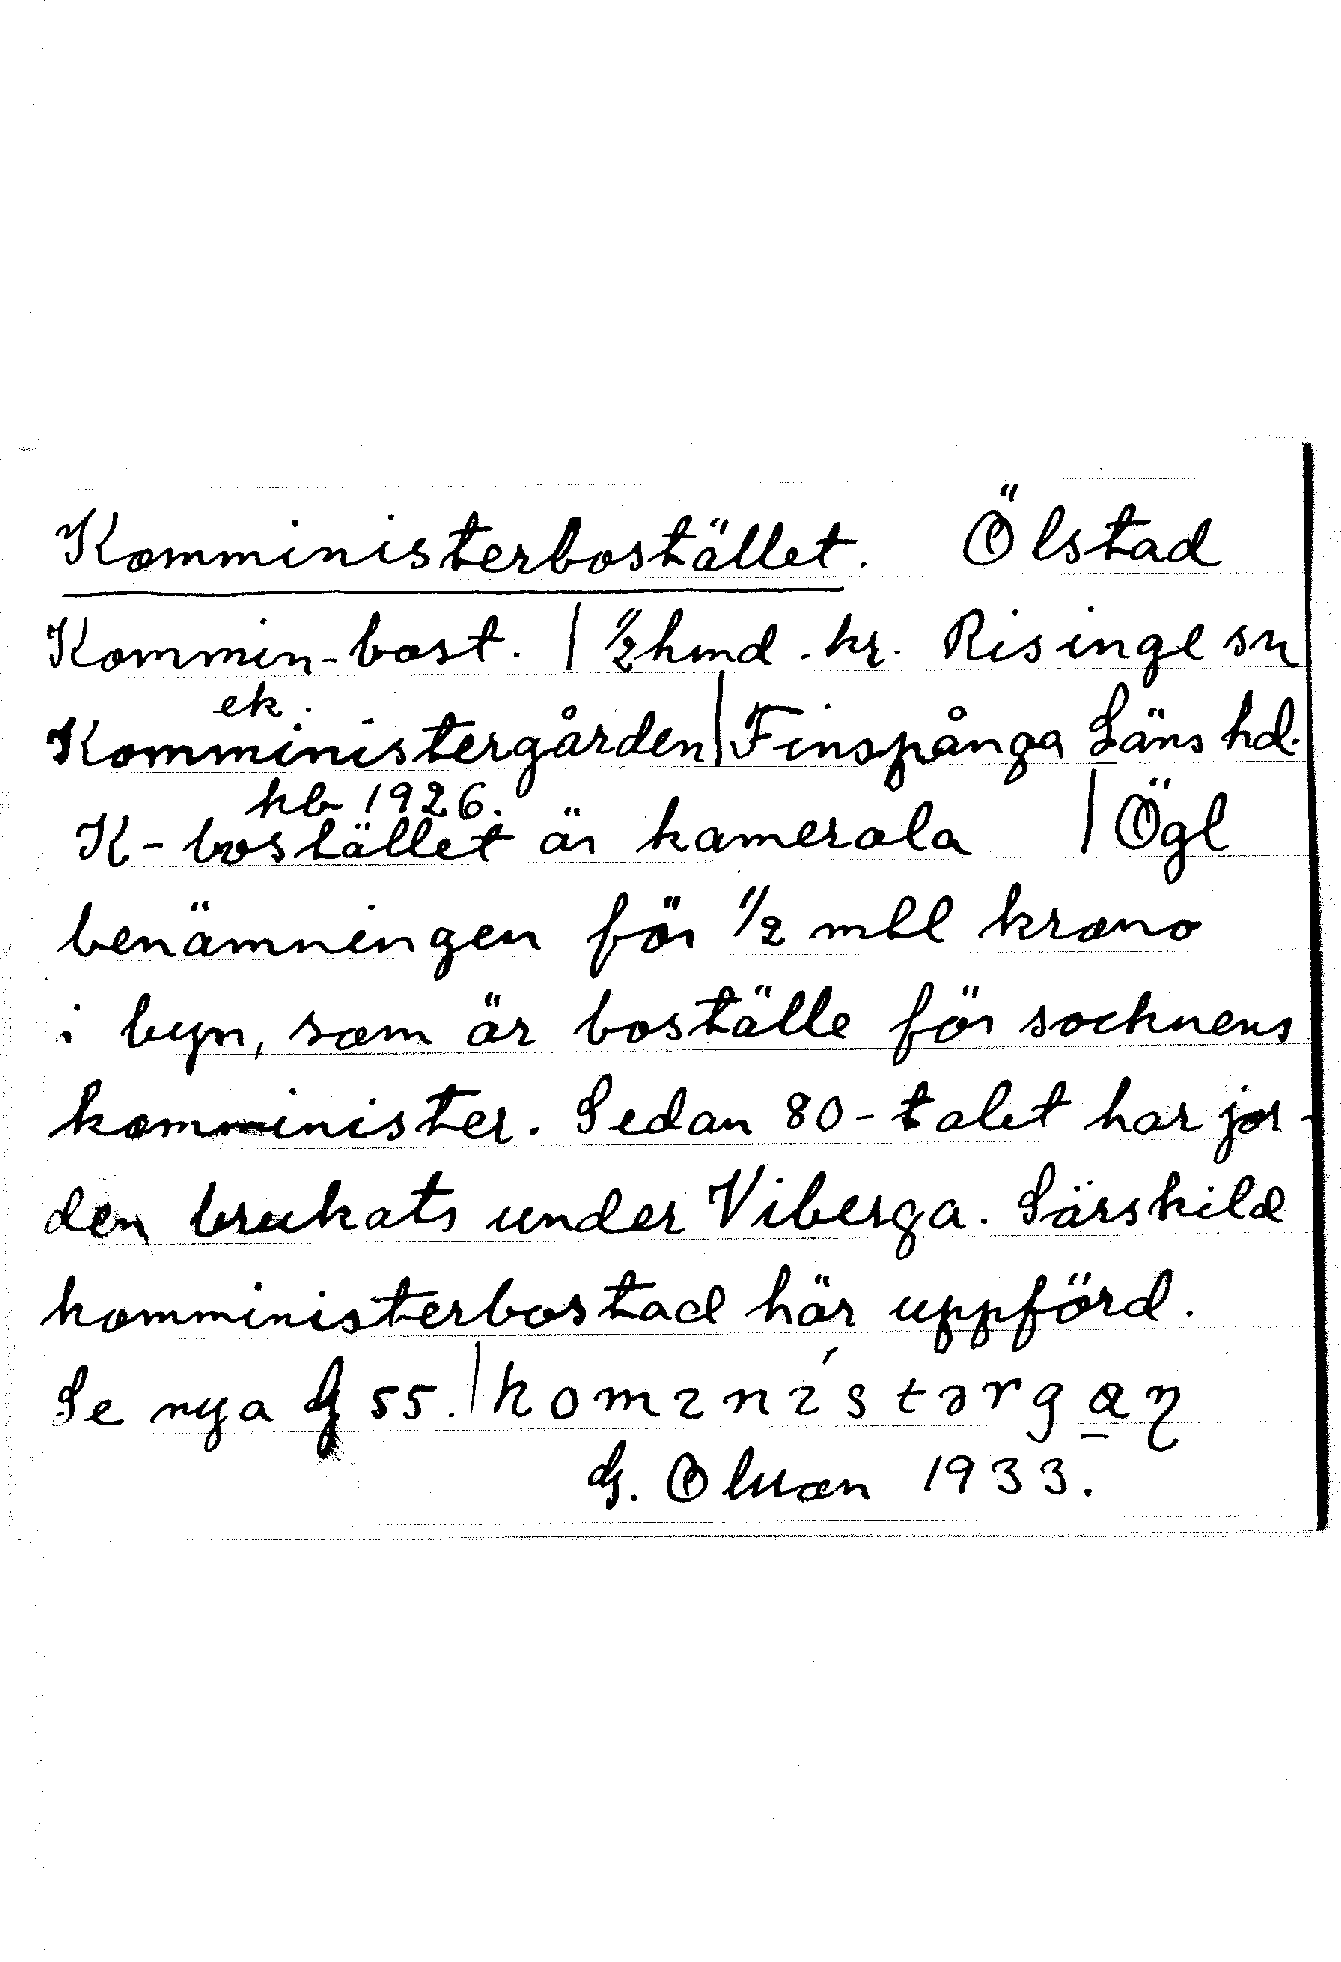 Komministerbostället. Ölstad
Kommin-bost. | 1/2 hmd. kr. Risinge sn
ek.
Komministergården | Finspånga Läns hd.
hb 1926.
K-bostället är kamerala | Ögl
benämningen för 1/2 mtl krono
i byn, som är boställe för socknens
komminister. Sedan 80-talet har jor-
den brukats under Viberga. Särskild
komministerbostad här uppförd.
Se nya G 55. | komınístərgaɳ
G. Olsson 1933.